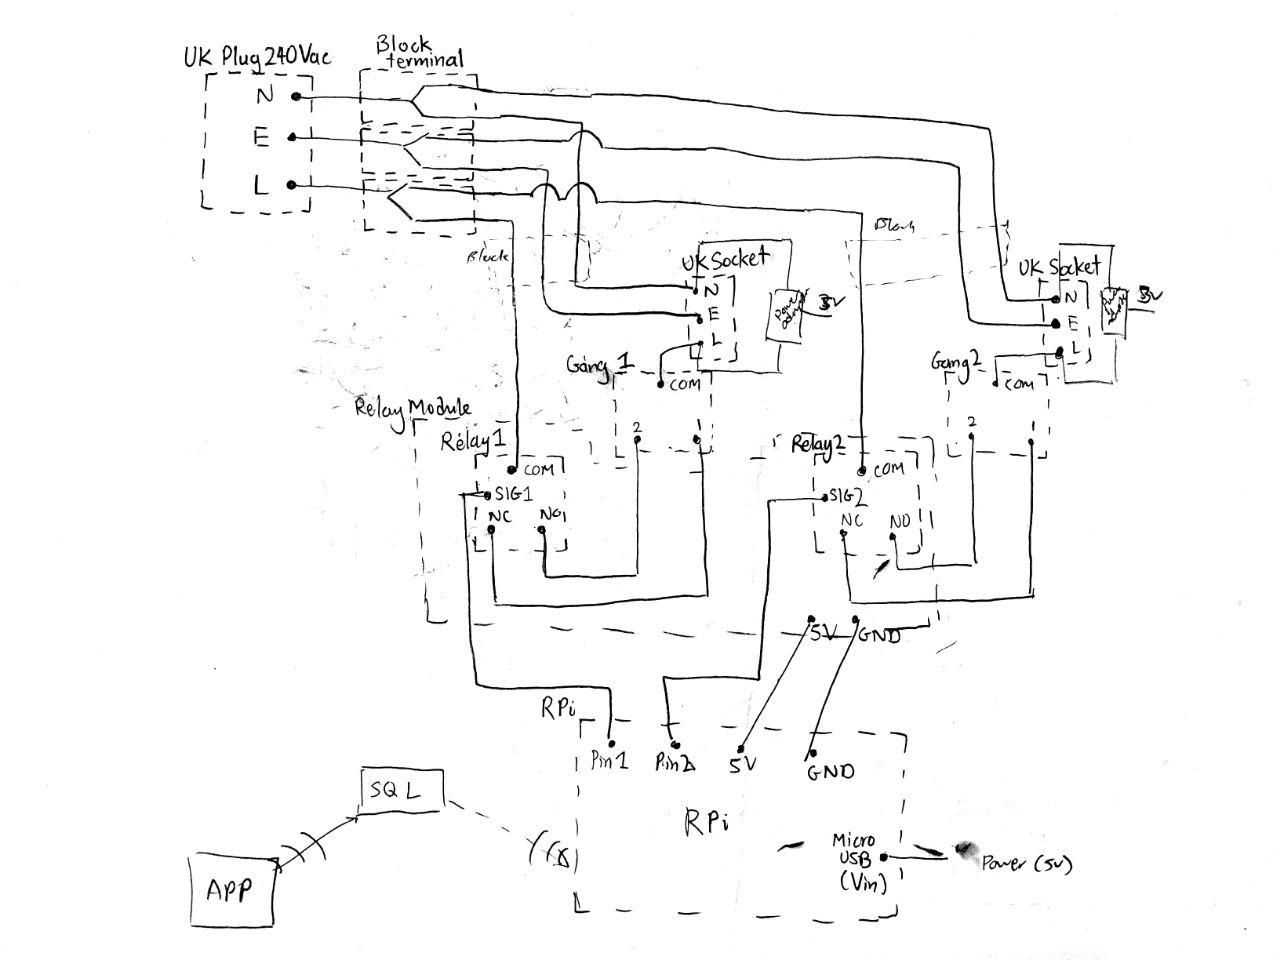 UK Plug 240Vac
Block
terminal
N
E
L
Block
Block
UK Socket
N
E
L
Power
3V
UK Socket
N
E
L
3V
Gang 1
COM
2
Gang 2
COM
2
Relay Module
Relay 1
COM
SIG1
NC
NO
Relay 2
COM
SIG2
NC
NO
5V
GND
RPi
Pin 1
Pin 2
5V
GND
RPi
Micro
USB
(Vin)
Power (5v)
SQL
APP